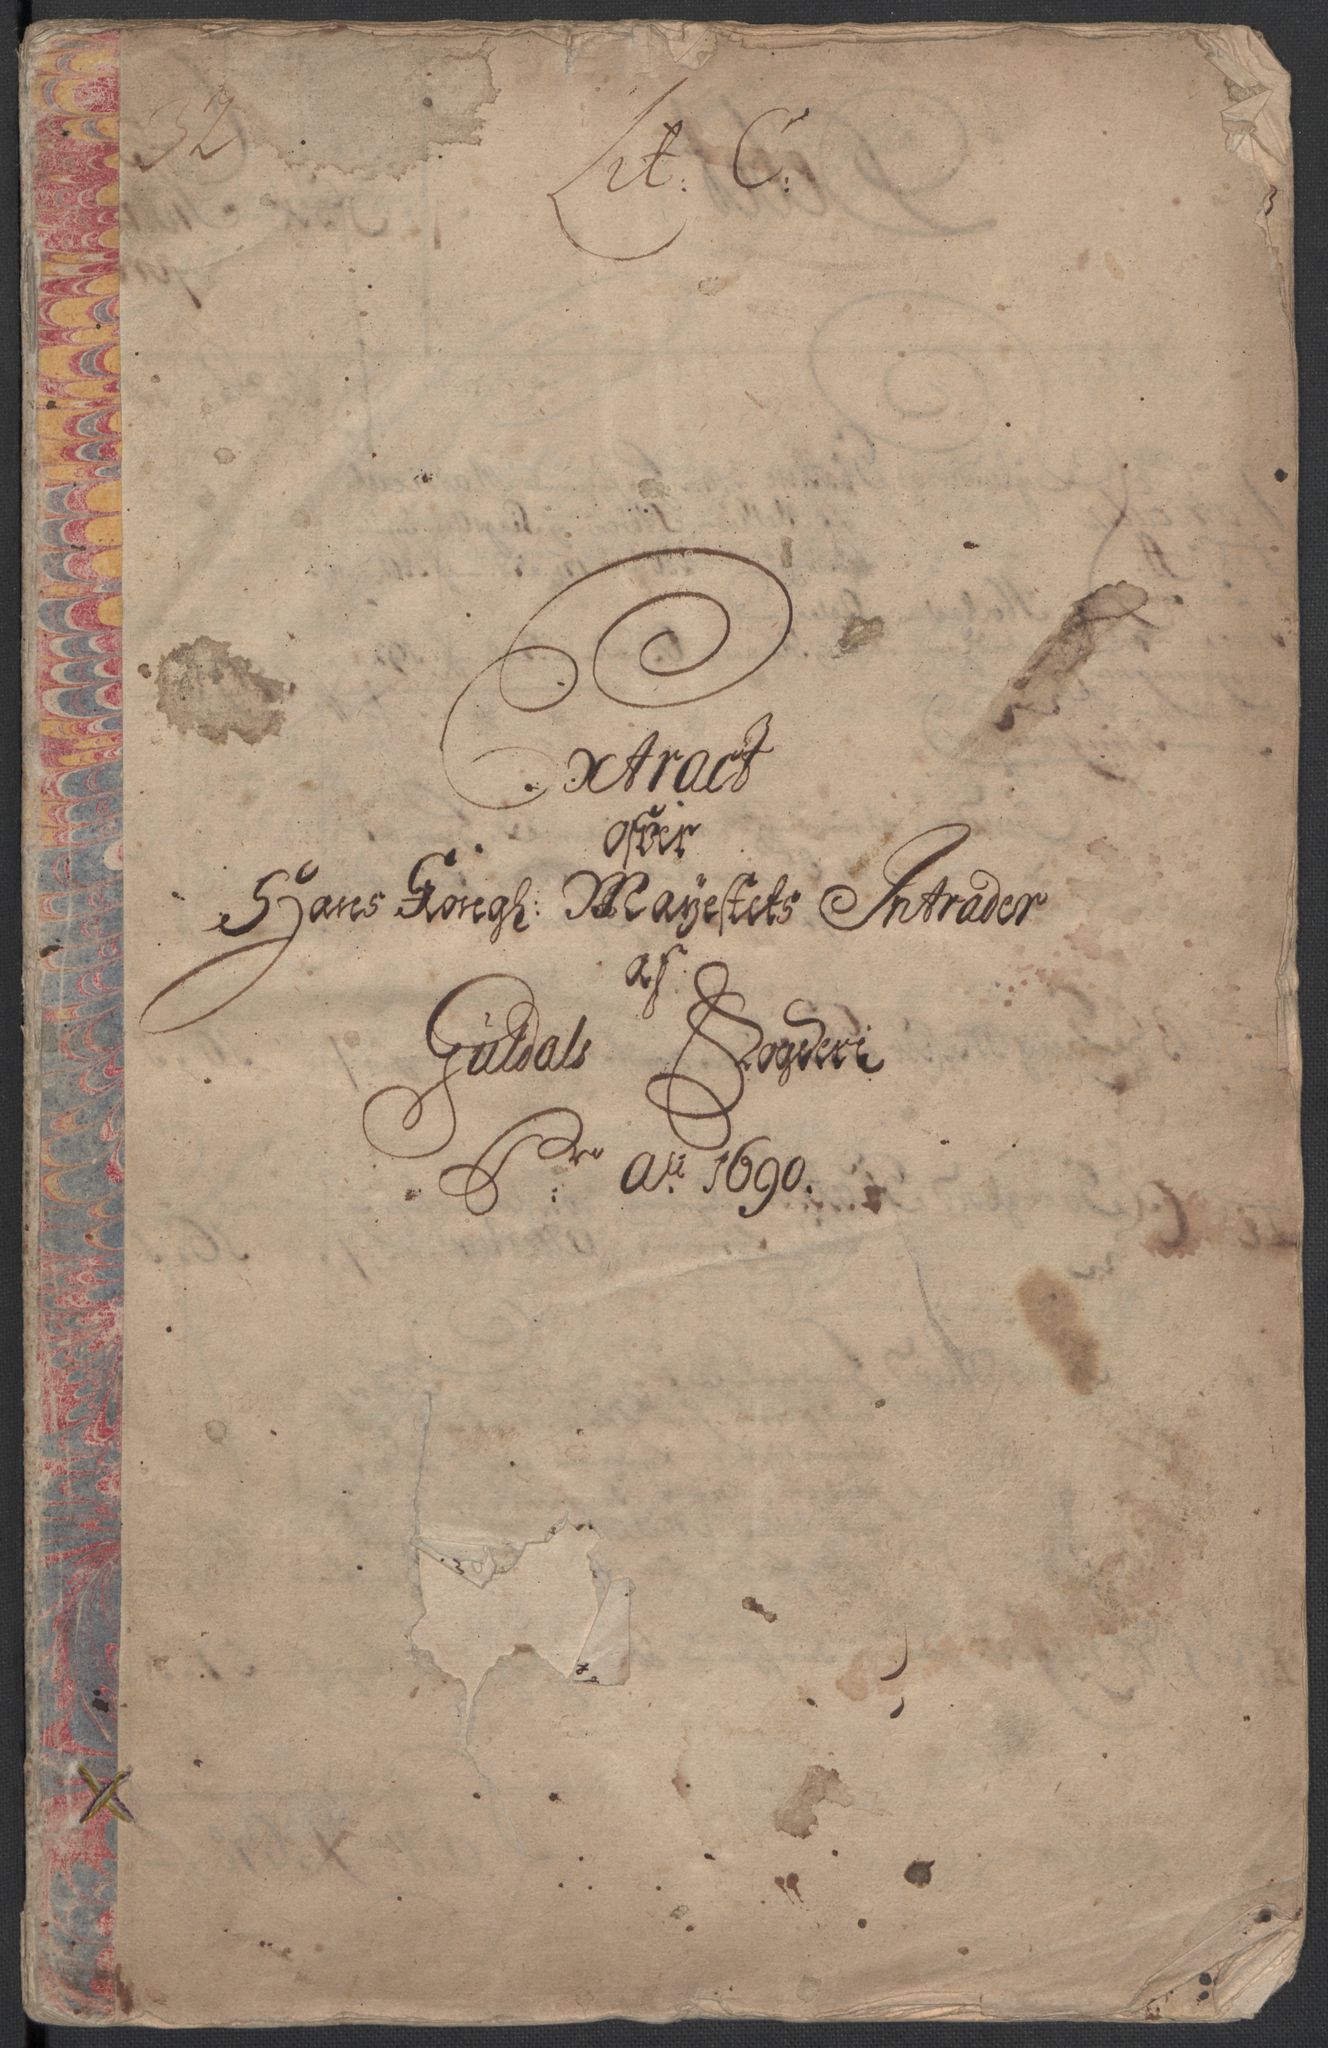 32
Lit: C:
Extract
ofver
Hans Kongh: Mayestets Intrader
af
Guldals Fogderi
Pro Ao: 1690.